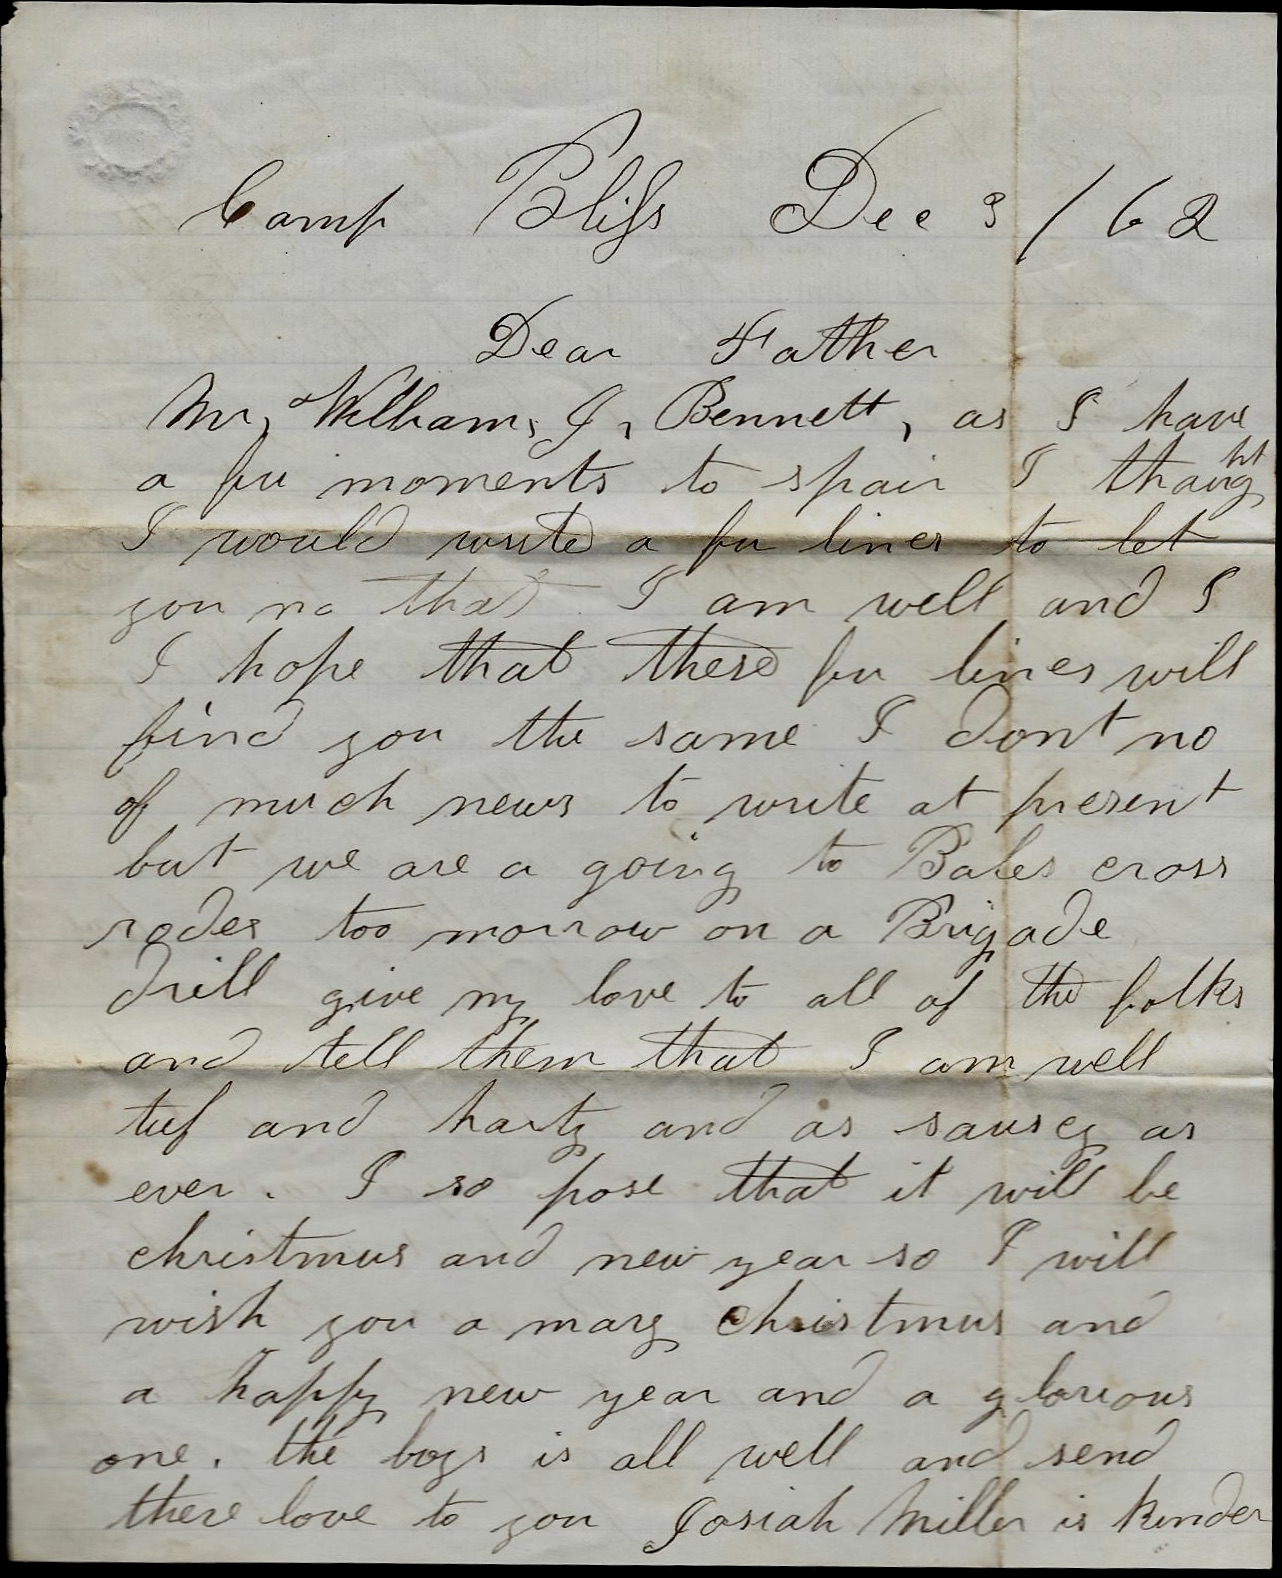 Camp Bliss Dec 3 / 62
Dear Father
Mr, William, J, Bennett, as I have
a fu moments to spair I thaught
I would write a fu lines to let
you no that I am well and I
I hope that these fu lines will
find you the same I dont no
of much news to write at present
but we are a going to Bales cross
rodes too morrow on a Brigade
drill give my love to all of the folks
and tell them that I am well
tuf and harty and as saucy as
ever. I so pose that it will be
christmus and new year so I will
wish you a mary christmus and
a happy new year and a glorious
one. the boys is all well and send
there love to you Josiah Miller is kinder